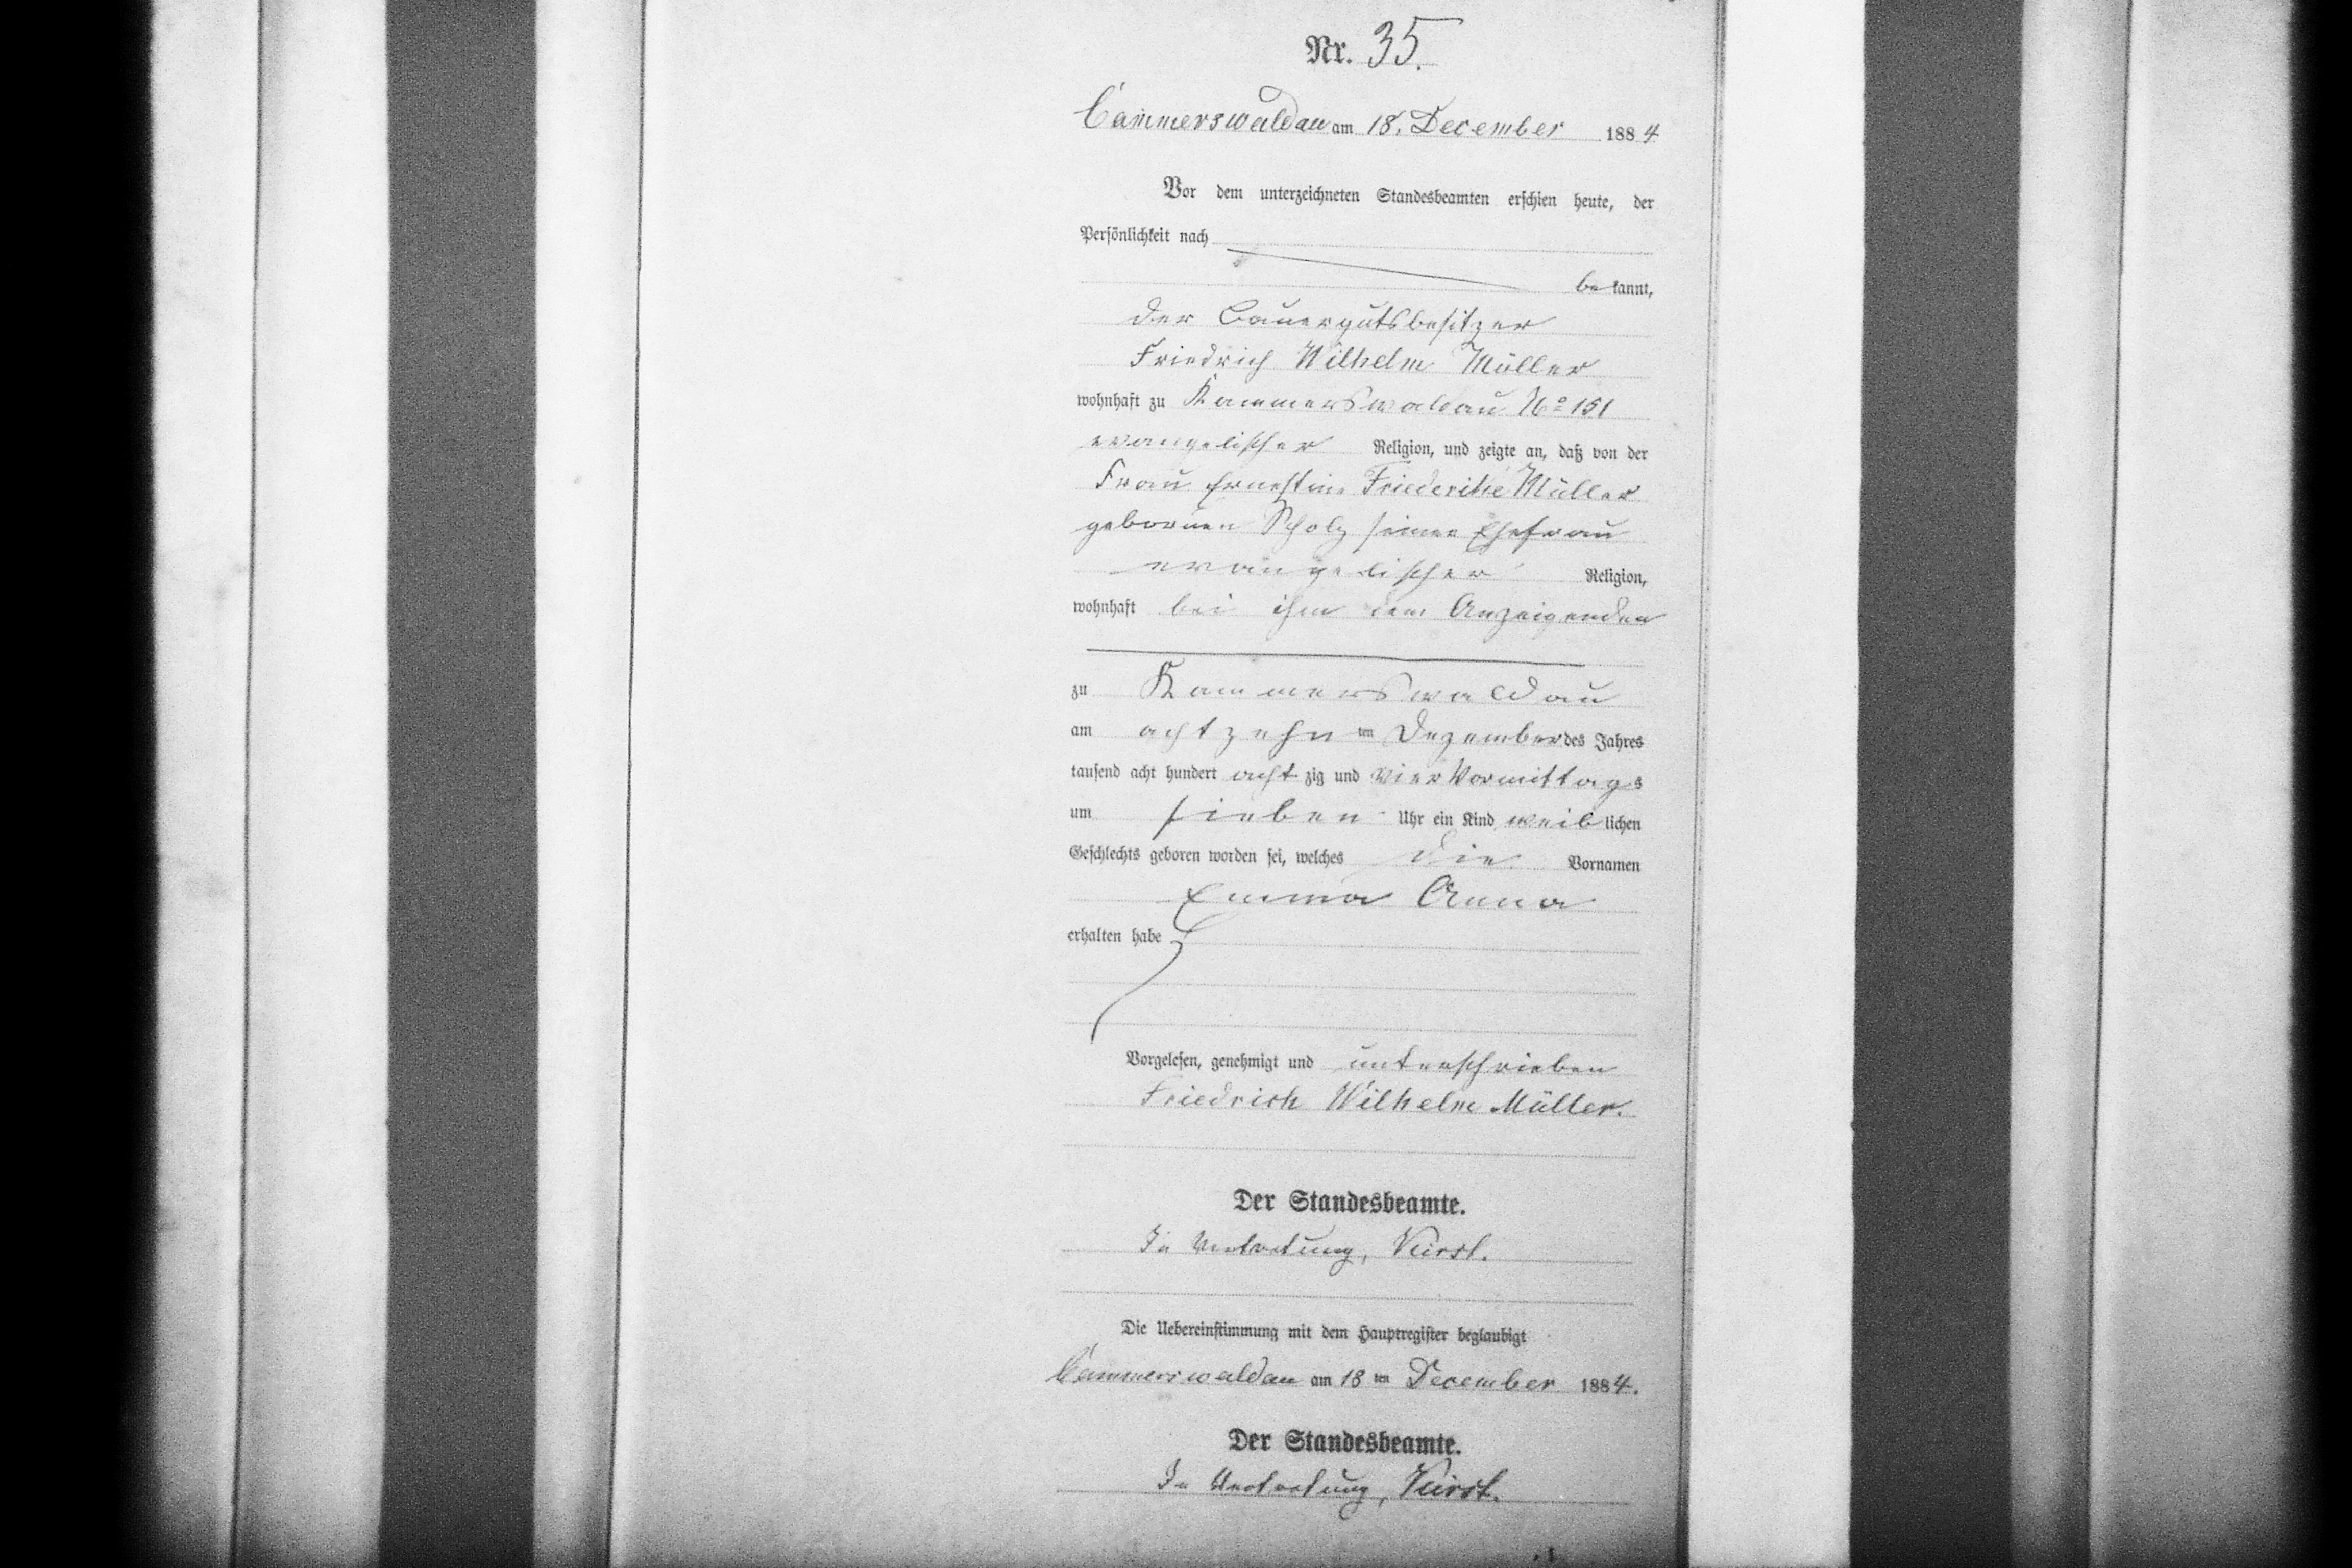 Nr. 35.
Cammerswaldau am 18. December 1884
Vor dem unterzeichneten Standesbeamten erschien heute, der
Persönlichkeit nach
bekannt,
der Bauergutsbesitzer
Friedrich Wilhelm Müller
wohnhaft zu Kammerswaldau No 151
evangelischer Religion, und zeigte an, daß von der
Frau Ernestine Friederike Müller
gebornen Scholz seiner Ehefrau
evangelischer Religion,
wohnhaft bei ihm dem Anzeigenden
zu Kammerswaldau
am achtzehn ten Dezember des Jahres
tausend acht hundert acht zig und vier Vormittags
um sieben Uhr ein Kind weiblichen
Geschlechts geboren worden sei, welches die Vornamen
Emma Anna
erhalten habe
Vorgelesen, genehmigt und unterschrieben
Friedrich Wilhelm Müller.
Der Standesbeamte.
In Vertretung,
Die Uebereinstimmung mit dem Hauptregister beglaubigt
Cammerswaldau am 18 ten December 1884.
Der Standesbeamte.
In Vertretung,